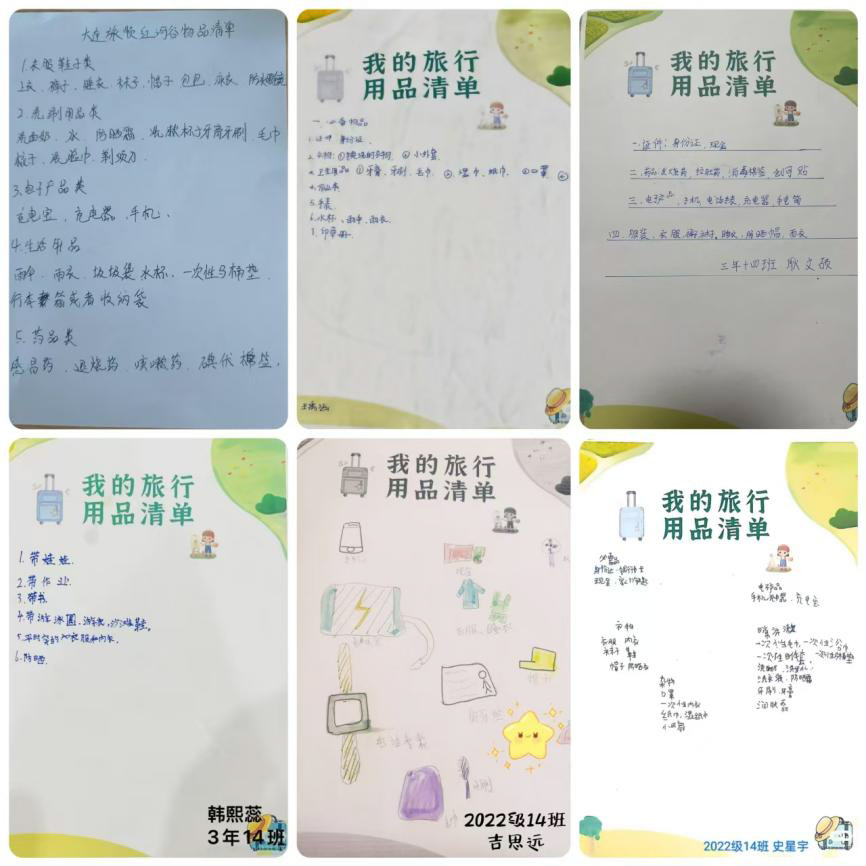 大连旅顺红河谷物品清单
1.衣服鞋子类
上衣、裤子、睡衣、袜子、帽子、包包、泳衣、防水
2.洗刷用品类
洗面奶、水、防晒霜、洗漱杯子牙膏牙刷、毛巾
梳子、洗脸巾、剃须刀
3.电子产品类
充电宝、充电器、手机、
4.生活用品
雨伞、雨衣、垃圾袋 水杯、一次性马桶垫
行李箱或者收纳袋
5.药品类
感冒药、退烧药、咳嗽药、碘伏棉签,
我的旅行
用品清单
一、必备物品
1.证件 身份证、
2.衣物:①换洗的衣物、②小外套
4.卫生用品 ①牙膏、牙刷、毛巾、②湿巾、纸巾、④口罩
5.手表
6.水杯、雨伞、雨衣、
我的旅行
用品清单
一.证件:身份证、现金
消毒棉签、创可贴
三、电子产品、手机、电话手表、充电器、
四、服装、衣服、防晒帽、雨衣
三年十四班 耿文硕
我的旅行
用品清单
1.带娃娃.
2.带作业.
3.带书.
4.带游泳圈、游泳衣,沙滩鞋。
5.平时穿的衣服和内衣.
6.防晒.
韩熙蕊
3年14班
我的旅行
用品清单
电话手表
帽子
牙刷
2022级14班
吉思远
我的旅行
用品清单
必需品
身份证、银行卡
现金、家门钥匙
电子产品
手机、充电器、充电宝
衣物
衣服 内衣
袜子 鞋
帽子 防晒衣
一次性毛巾、
洗面奶、洗发水、
洗衣液、防晒霜
牙刷、牙膏
润肤
杂物
口罩
一次性内衣
纸巾、湿纸巾
小风扇
2022级14班 史星宇